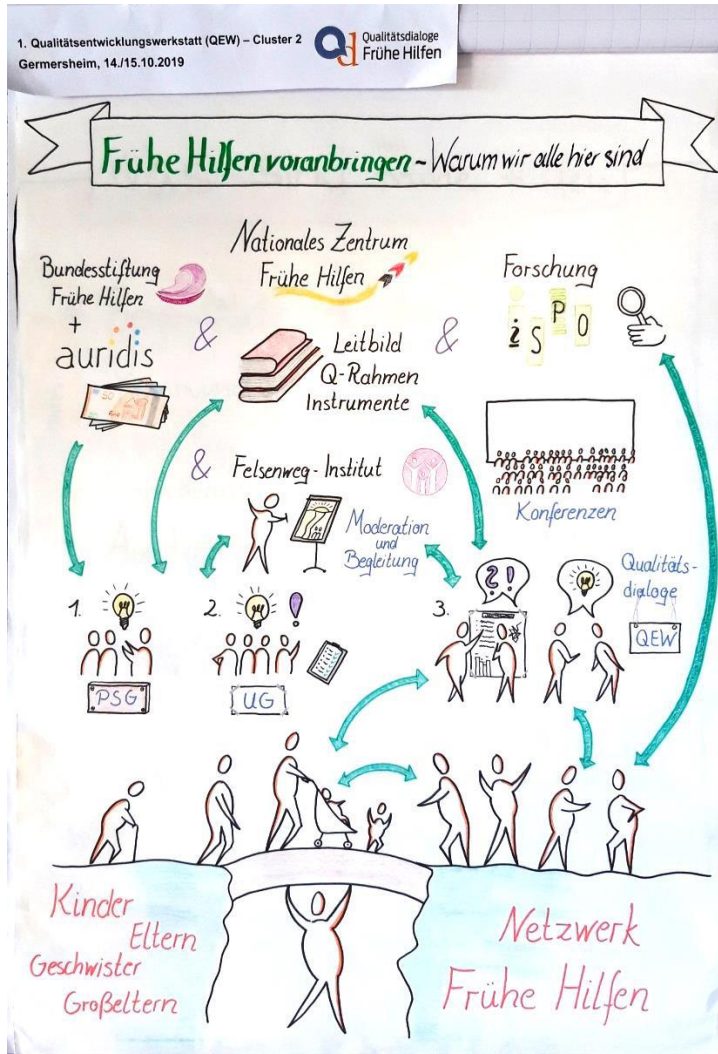 1. Qualitätsentwicklungswerkstatt (QEW) – Cluster 2
Germersheim, 14./15.10.2019
Qd
Qualitätsdialoge
Frühe Hilfen
Frühe Hilfen voranbringen - Warum wir alle hier sind
Bundesstiftung
Frühe Hilfen
+
auridis
50
&
Nationales Zentrum
Frühe Hilfen
Leitbild
Q-Rahmen
Instrumente
&
Forschung
iSPO
Konferenzen
& Felsenweg-Institut
Moderation
und
Begleitung
1.
PSG
2.
!
UG
3.
?!
Qualitäts-
dialoge
QEW
Kinder
Eltern
Geschwister
Großeltern
Netzwerk
Frühe Hilfen